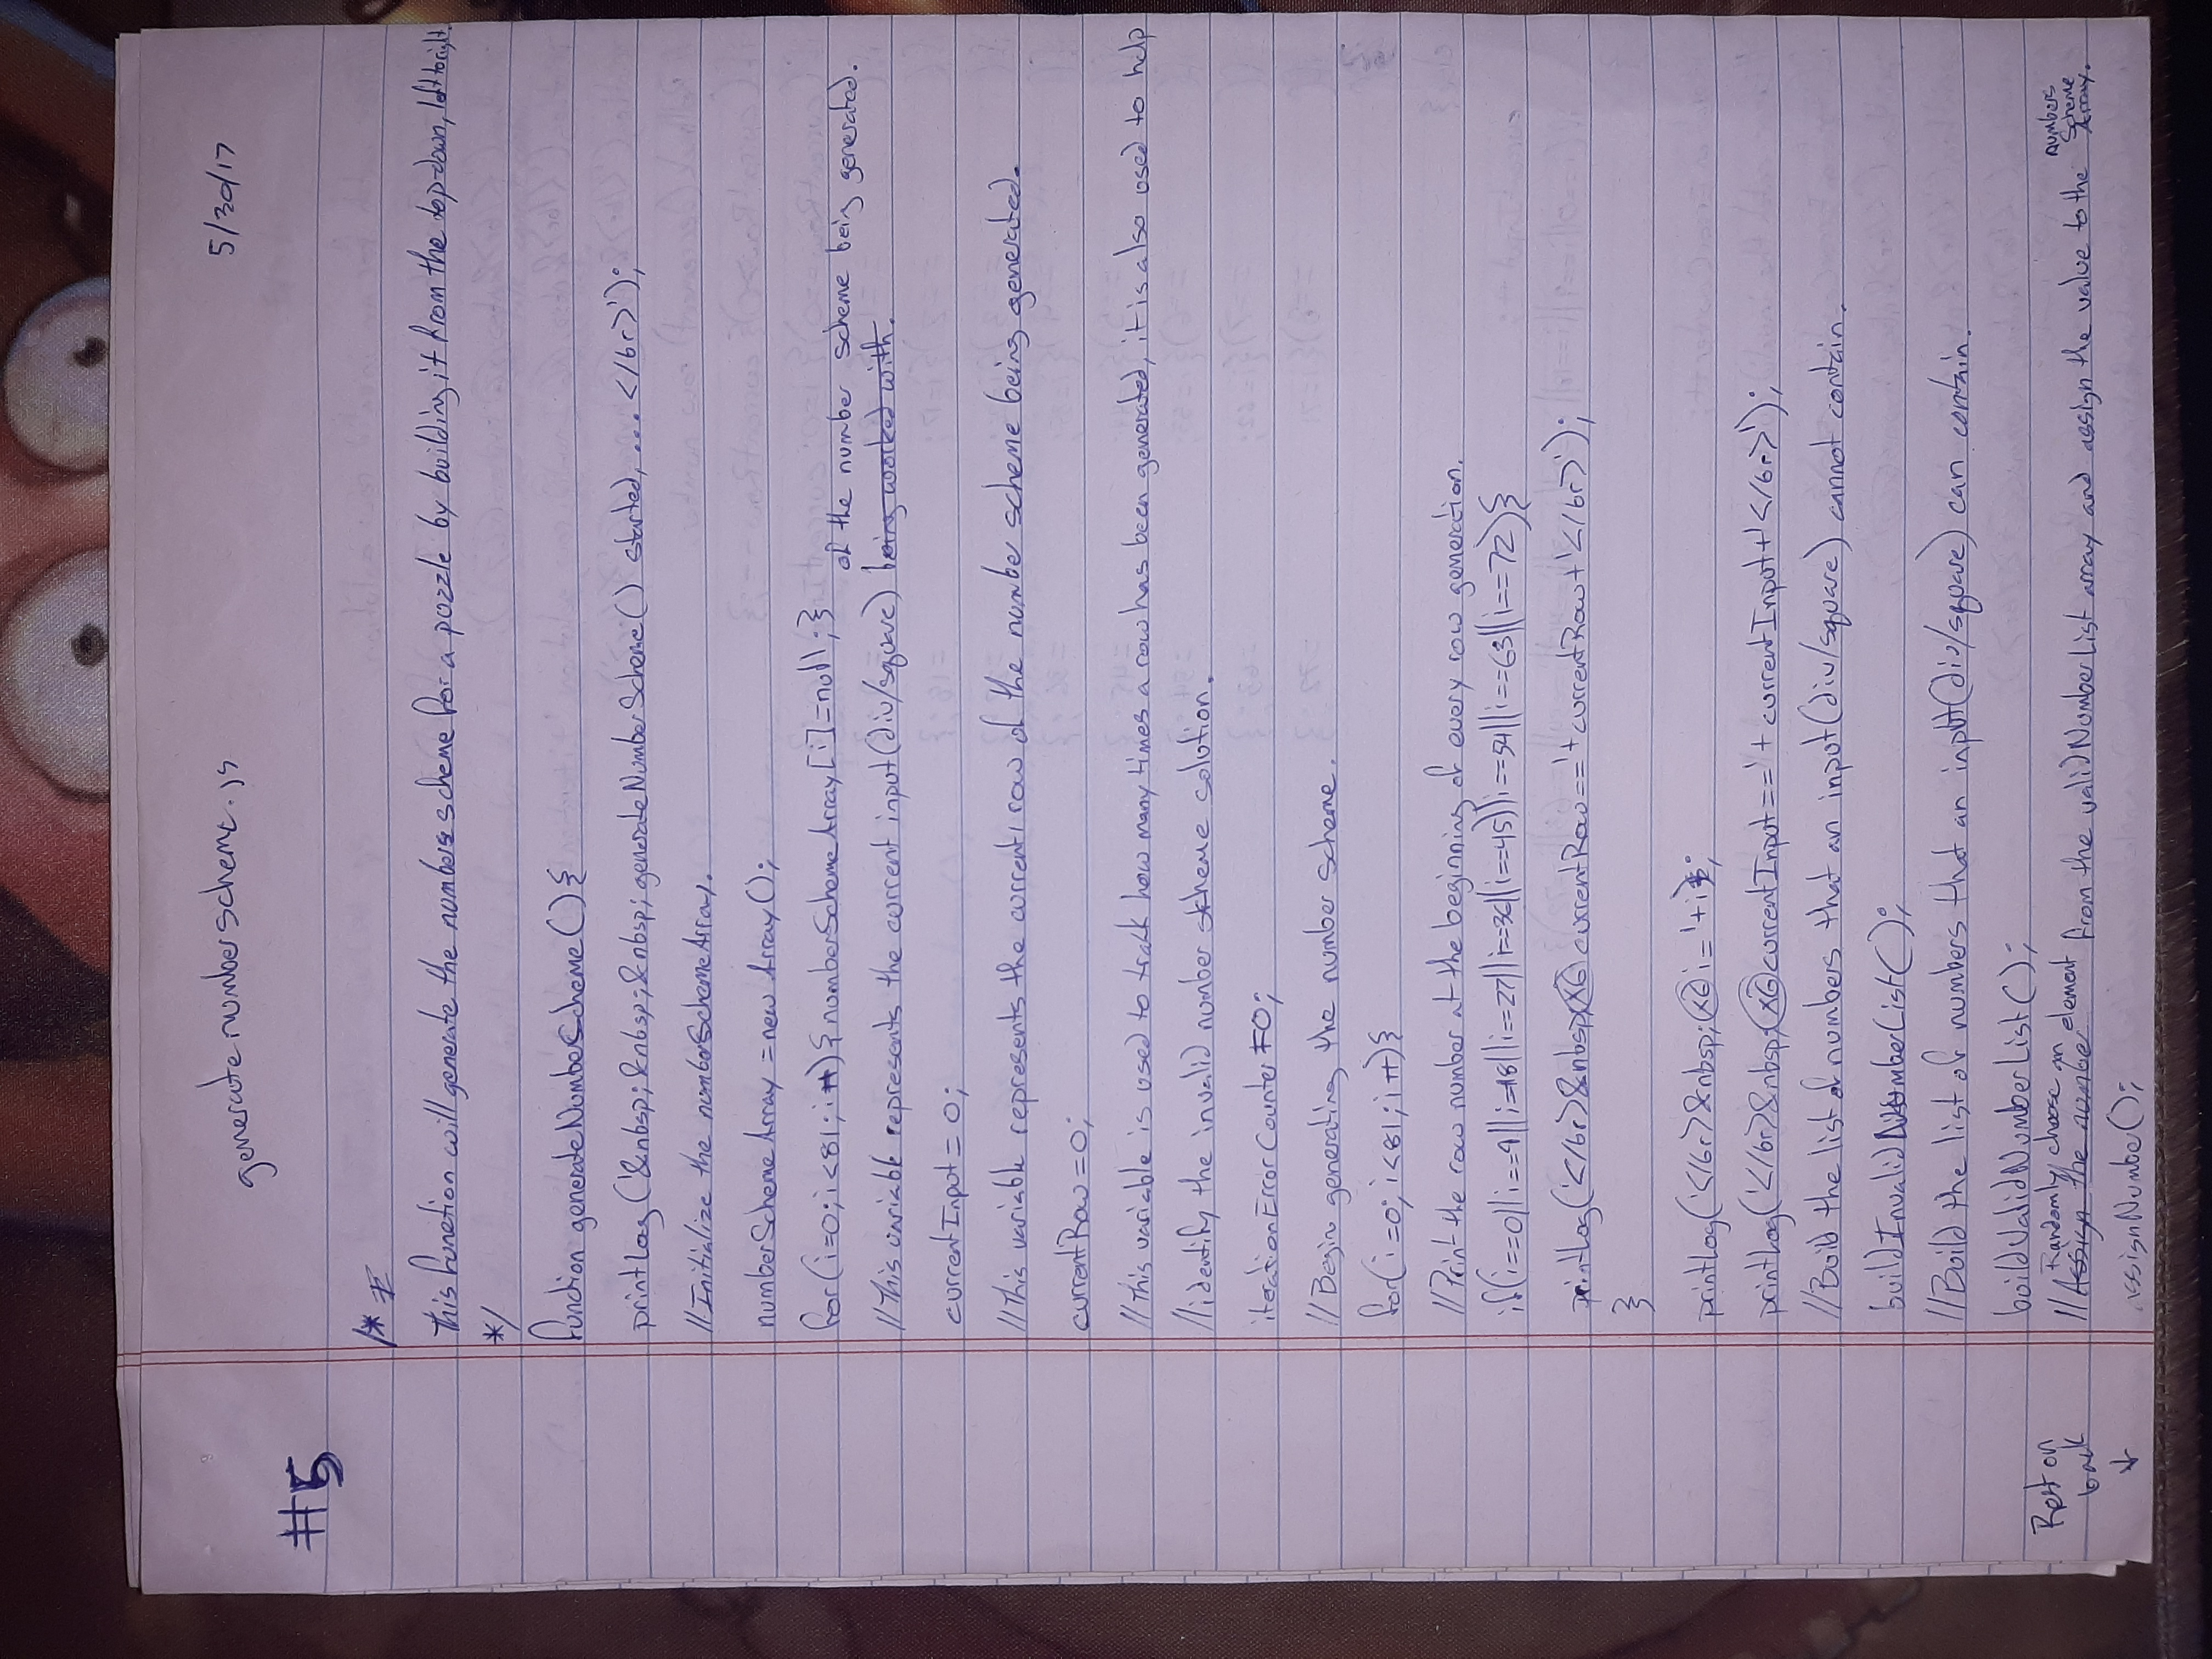 generatenumberscheme.js
5/30/17
#5
/*
This function will generate the numbers scheme for a puzzle by building it from the top-down, left to right.
*/
function generateNumberScheme(){
printLog('&nbsp;&nbsp;&nbsp;generateNumberScheme() started, ...</br>');
//Initialize the numberSchemeArray.
numberSchemeArray = new Array();
for(i=0;i<81;i++){numberSchemeArray[i]=null;}
of the number scheme being generated.
//This variable represents the current input(div/square) being worked with.
currentInput = 0;
//This variable represents the current row of the number scheme being generated.
currentRow=0;
//This variable is used to track how many times a row has been generated, it is also used to help
//identify the invalid number scheme solution.
iterationErrorCounter=0;
//Begin generating the number scheme.
for(i=0;i<81;i++){
//Print the row number at the beginning of every row generation.
if(i==0||i==9||i==18||i==27||i==36||i==45||i==54||i==63||i==72){
printLog('</br>&nbsp;x6 currentRow=='+currentRow+'</br>');
}
printLog('</br>&nbsp;x6 i='+i);
printLog('</br>&nbsp;x6 currentInput=='+currentInput+'</br>');
//Build the list of numbers that an input(div/square) cannot contain.
buildInvalidNumberList();
//Build the list of numbers that an input(div/square) can contain.
buildValidNumberList();
Randomly choose an
//Assign the number element from the validNumberList array and assign the value to the numbers Scheme Array.
assignNumber();
Rest on
back
↓